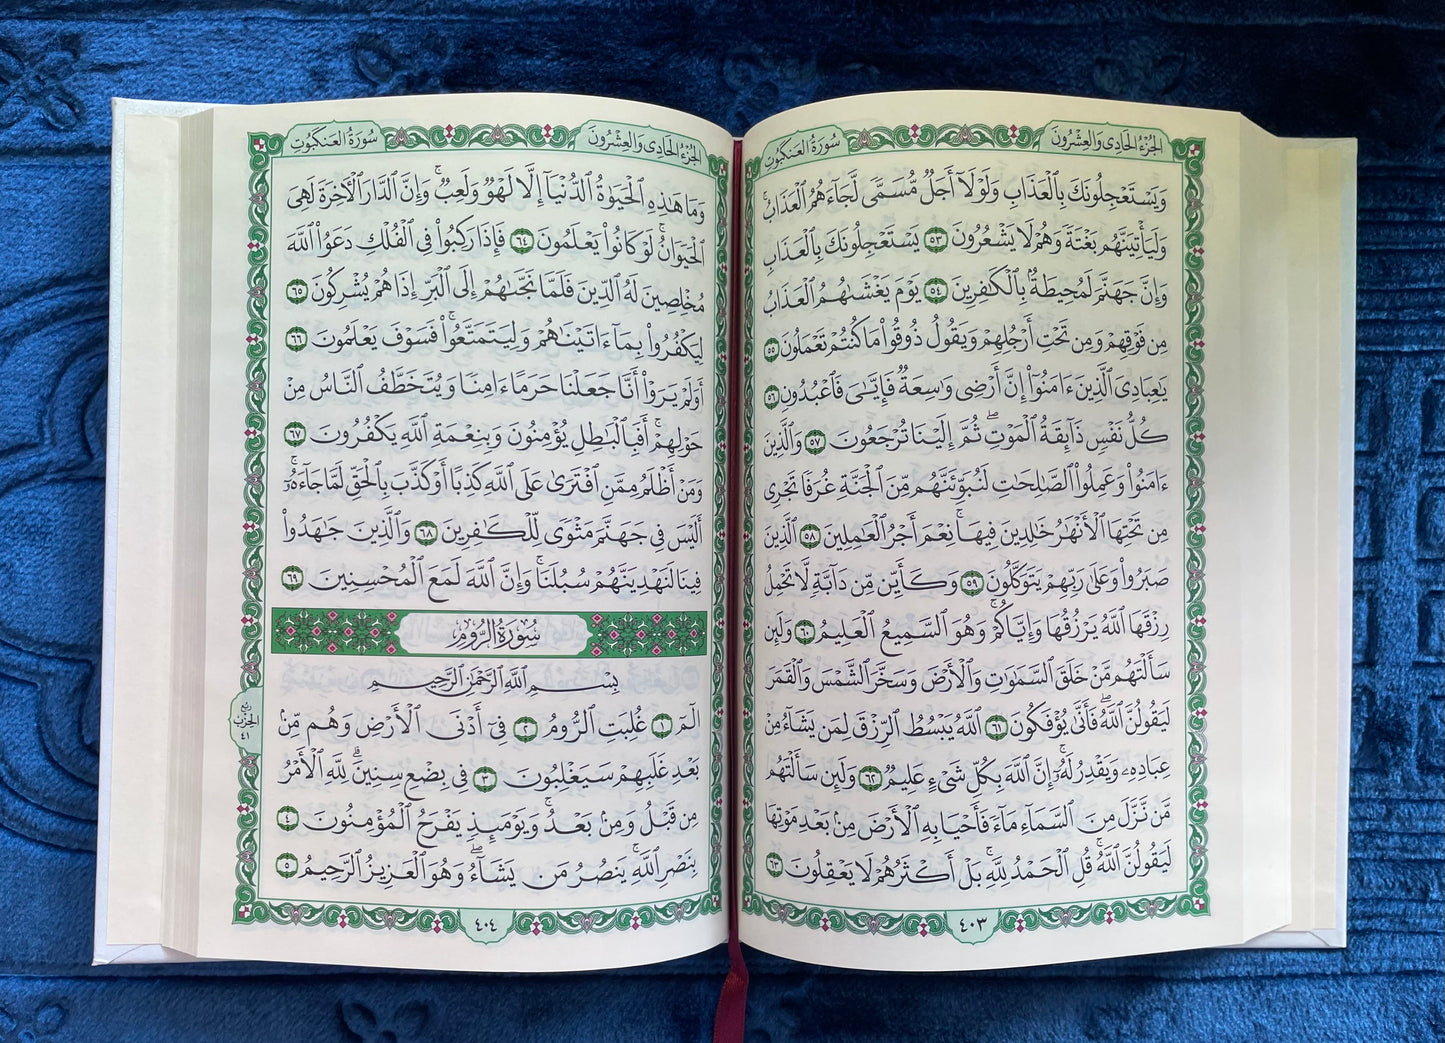 الجُزْءُ الحَادِي وَالعِشْرُونَ
سُورَةُ العَنكَبُوتِ
وَيَسْتَعْجِلُونَكَ بِالْعَذَابِ وَلَوْلَآ أَجَلٌ مُّسَمًّى لَّجَآءَهُمُ الْعَذَابُ ۚ
وَلَيَأْتِيَنَّهُم بَغْتَةً وَهُمْ لَا يَشْعُرُونَ ٥٣ يَسْتَعْجِلُونَكَ بِالْعَذَابِ
وَإِنَّ جَهَنَّمَ لَمُحِيطَةٌۢ بِالْكَٰفِرِينَ ٥٤ يَوْمَ يَغْشَىٰهُمُ الْعَذَابُ
مِن فَوْقِهِمْ وَمِن تَحْتِ أَرْجُلِهِمْ وَيَقُولُ ذُوقُوا۟ مَا كُنتُمْ تَعْمَلُونَ ٥٥
يَٰعِبَادِيَ الَّذِينَ ءَامَنُوٓا۟ إِنَّ أَرْضِى وَٰسِعَةٌ فَإِيَّٰىَ فَاعْبُدُونِ ٥٦
كُلُّ نَفْسٍ ذَآئِقَةُ الْمَوْتِ ۖ ثُمَّ إِلَيْنَا تُرْجَعُونَ ٥٧ وَالَّذِينَ
ءَامَنُوا۟ وَعَمِلُوا۟ الصَّٰلِحَٰتِ لَنُبَوِّئَنَّهُم مِّنَ الْجَنَّةِ غُرَفًا تَجْرِى
مِن تَحْتِهَا الْأَنْهَٰرُ خَٰلِدِينَ فِيهَا ۚ نِعْمَ أَجْرُ الْعَٰمِلِينَ ٥٨ الَّذِينَ
صَبَرُوا۟ وَعَلَىٰ رَبِّهِمْ يَتَوَكَّلُونَ ٥٩ وَكَأَيِّن مِّن دَآبَّةٍ لَّا تَحْمِلُ
رِزْقَهَا اللَّهُ يَرْزُقُهَا وَإِيَّاكُمْ ۚ وَهُوَ السَّمِيعُ الْعَلِيمُ ٦٠ وَلَئِن
سَأَلْتَهُم مَّنْ خَلَقَ السَّمَٰوَٰتِ وَالْأَرْضَ وَسَخَّرَ الشَّمْسَ وَالْقَمَرَ
لَيَقُولُنَّ اللَّهُ ۖ فَأَنَّىٰ يُؤْفَكُونَ ٦١ اللَّهُ يَبْسُطُ الرِّزْقَ لِمَن يَشَآءُ مِنْ
عِبَادِهِۦ وَيَقْدِرُ لَهُۥٓ ۚ إِنَّ اللَّهَ بِكُلِّ شَىْءٍ عَلِيمٌ ٦٢ وَلَئِن سَأَلْتَهُم
مَّن نَّزَّلَ مِنَ السَّمَآءِ مَآءً فَأَحْيَا بِهِ الْأَرْضَ مِنۢ بَعْدِ مَوْتِهَا
لَيَقُولُنَّ اللَّهُ ۚ قُلِ الْحَمْدُ لِلَّهِ ۚ بَلْ أَكْثَرُهُمْ لَا يَعْقِلُونَ ٦٣
٤٠٣
الجُزْءُ الحَادِي وَالعِشْرُونَ
سُورَةُ العَنكَبُوتِ
وَمَا هَٰذِهِ الْحَيَوٰةُ الدُّنْيَآ إِلَّا لَهْوٌ وَلَعِبٌ ۚ وَإِنَّ الدَّارَ الْءَاخِرَةَ لَهِىَ
الْحَيَوَانُ ۚ لَوْ كَانُوا۟ يَعْلَمُونَ ٦٤ فَإِذَا رَكِبُوا۟ فِى الْفُلْكِ دَعَوُا۟ اللَّهَ
مُخْلِصِينَ لَهُ الدِّينَ فَلَمَّا نَجَّىٰهُمْ إِلَى الْبَرِّ إِذَا هُمْ يُشْرِكُونَ ٦٥
لِيَكْفُرُوا۟ بِمَآ ءَاتَيْنَٰهُمْ وَلِيَتَمَتَّعُوا۟ ۖ فَسَوْفَ يَعْلَمُونَ ٦٦
أَوَلَمْ يَرَوْا۟ أَنَّا جَعَلْنَا حَرَمًا ءَامِنًا وَيُتَخَطَّفُ النَّاسُ مِنْ
حَوْلِهِمْ ۚ أَفَبِالْبَٰطِلِ يُؤْمِنُونَ وَبِنِعْمَةِ اللَّهِ يَكْفُرُونَ ٦٧
وَمَنْ أَظْلَمُ مِمَّنِ افْتَرَىٰ عَلَى اللَّهِ كَذِبًا أَوْ كَذَّبَ بِالْحَقِّ لَمَّا جَآءَهُۥٓ ۚ
أَلَيْسَ فِى جَهَنَّمَ مَثْوًى لِّلْكَٰفِرِينَ ٦٨ وَالَّذِينَ جَٰهَدُوا۟
فِينَا لَنَهْدِيَنَّهُمْ سُبُلَنَا ۚ وَإِنَّ اللَّهَ لَمَعَ الْمُحْسِنِينَ ٦٩
سُورَةُ الرُّومِ
بِسْمِ اللَّهِ الرَّحْمَٰنِ الرَّحِيمِ
الٓمٓ ١ غُلِبَتِ الرُّومُ ٢ فِىٓ أَدْنَى الْأَرْضِ وَهُم مِّنۢ
بَعْدِ غَلَبِهِمْ سَيَغْلِبُونَ ٣ فِى بِضْعِ سِنِينَ ۗ لِلَّهِ الْأَمْرُ
مِن قَبْلُ وَمِنۢ بَعْدُ ۚ وَيَوْمَئِذٍ يَفْرَحُ الْمُؤْمِنُونَ ٤
بِنَصْرِ اللَّهِ ۚ يَنصُرُ مَن يَشَآءُ ۖ وَهُوَ الْعَزِيزُ الرَّحِيمُ ٥
ربع
الحزب
٤١
٤٠٤